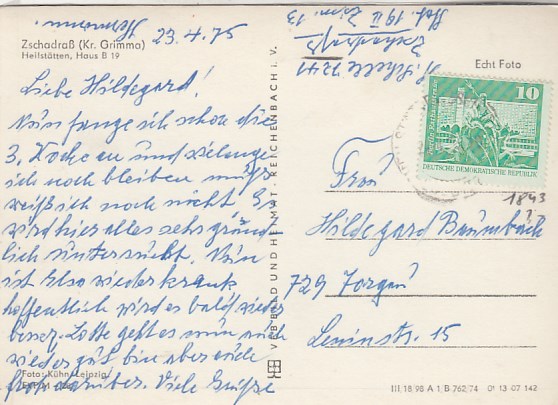 Hermann.
23.4.75
Zschadraß (Kr. Grimma)
Heilstätten, Haus B 19
Liebe Hildegard!
Nun fange ich schon die
3. Woche an und wie lange
ich noch bleiben muß
weiß ich noch nicht. Es
wird hier alles sehr gründ-
lich untersucht. Nun
ist Else wieder krank
hoffentlich wird es bald wieder
besser. Lotte geht es nun auch
wieder gut bin aber auch
froh darüber. Viele Grüße
Foto: Kühn, Leipzig
VEB BILD UND HEIMAT, REICHENBACH i. V.
7241
Zschadraß
Stat. 19 II Zim. 13
Echt Foto
10
DEUTSCHE DEMOKRATISCHE REPUBLIK
1843
?
Frau
Hildegard Baumbach
729 Torgau
Leninstr. 15
III 18 98 A 1 B 762/74 01 13 07 142